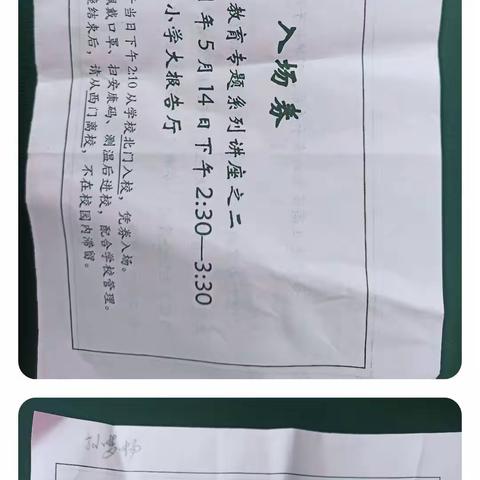 入场券
教育专题系列讲座之二
年5月14日下午2:30—3:30
小学大报告厅
当日下午2:10从学校北门入校，凭券入场。
戴口罩、扫安康码、测温后进校，配合学校管理。
结束后，请从西门离校，不在校园内滞留。